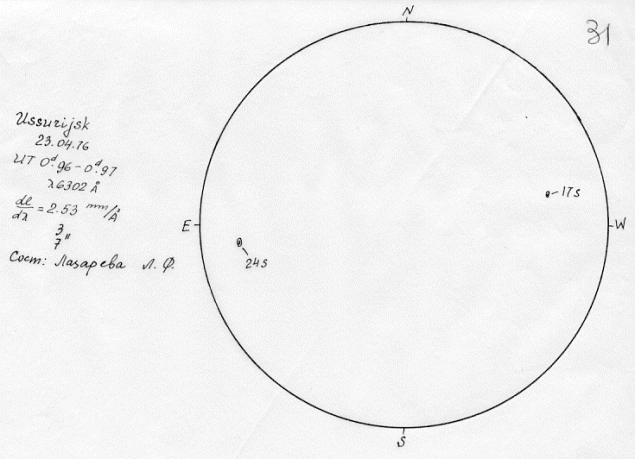 31
N
Ussurijsk
23.04.76
UT 0ᵈ.96 - 0ᵈ.97
λ6302 Å
dl/dλ = 2.53 mm/Å
3
7"
Сост: Лазарева Л. Ф.
17S
E
W
24S
S